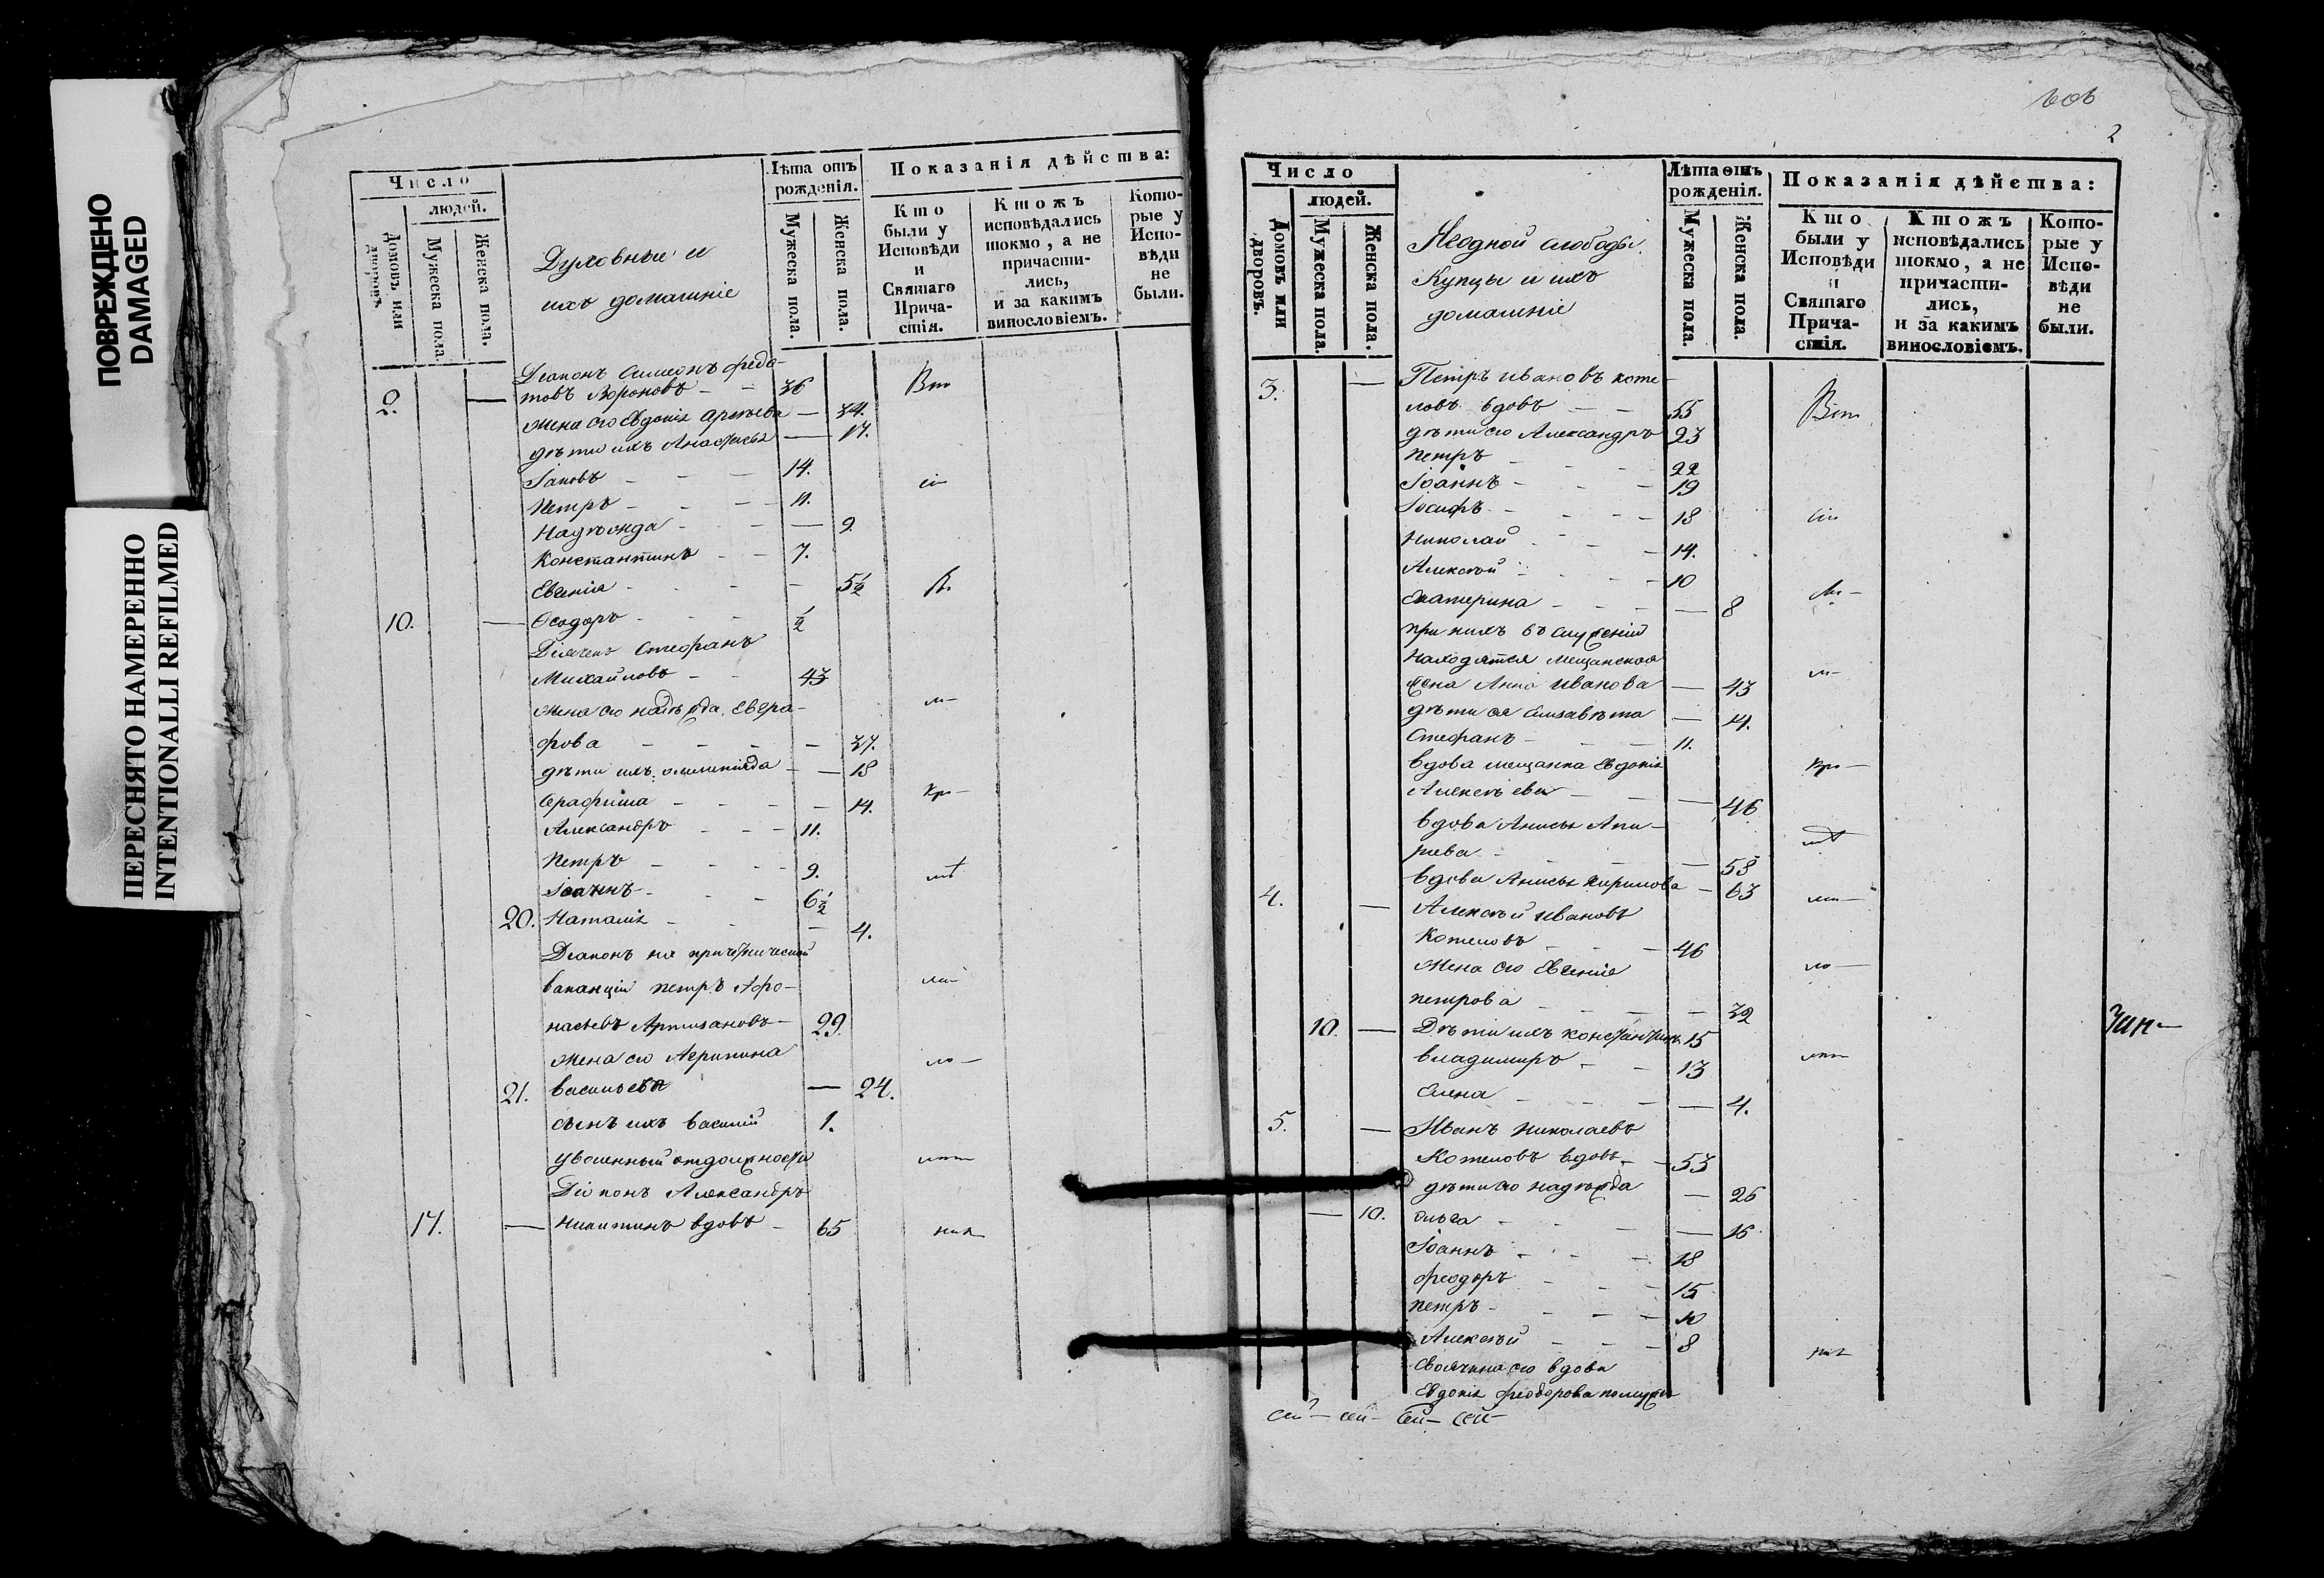 ПОВРЕЖДЕНО
DAMAGED
ПЕРЕСНЯТО НАМЕРЕННО
INTENTIONALLI REFILMED
Число
людей.
Домовъ или дворовъ.
Мужеска пола.
Женска пола.
Духовные и
ихъ домашніе
Лѣта отъ рожденія.
Мужеска пола.
Женска пола.
Показанія дѣйства:
Кто были у Исповѣди и Святаго Прича-стія.
Ктожъ исповѣдались токмо, а не причасти-лись, и за какимъ винословіемъ.
Кото-рые у Испо-вѣди не были.
2. — Діаконъ Симеонъ Федо-
товъ Вороновъ — 36
жена его Евдокія — 34.
дѣти ихъ Анастасья — 17.
Іаковъ — 14.
Петръ — 11.
Надѣжда — 9.
Константинъ — 7.
Евгенія — 5½
10. — Ѳеодоръ — ½
Діячекъ Стефанъ
Михайловъ — 43
жена его надѣжда Евгра-
фова — 37.
дѣти ихъ олимпіяда — 18
Серафима — 14.
Александръ — 11.
Петръ — 9.
Іоаннъ — 6½
20. Наталія — 4.
Діаконъ на причетнической
ваканціи петръ Афо-
насьевъ — 29.
жена его Агрипина
21. васильева — 24.
сынъ ихъ василій 1.
уволенный отдолжности
Діаконъ Александръ
17. — никитинъ вдовъ — 65
2
Число
людей.
Домовъ или дворовъ.
Мужеска пола.
Женска пола.
слободы.
Купцы и ихъ
домашніе
Лѣта отъ рожденія.
Мужеска пола.
Женска пола.
Показанія дѣйства:
Кто были у Исповѣди и Святаго Прича-стія.
Ктожъ исповѣдались токмо, а не причасти-лись, и за какимъ винословіемъ.
Кото-рые у Испо-вѣди не были.
3. — Петръ ивановъ коте-
ловъ вдовъ — 55
дѣти его Александръ 23
Петръ 22
Іоаннъ — 19
Іосифъ — 18
Николай — 14.
Алексѣй — 10
Екатерина — 8
при нихъ въ служеніи
находятся мещанская
жена Анна иванова — 43
дѣти ея Елизавѣта — 14.
Стефанъ — 11.
вдова мещанка Евдокія
Алексѣева — 46
вдова Анисья
— 58
вдова Анисья Кирилова — 63
4. — Алексѣй ивановъ
Котеловъ — 46
жена его Евгенія
петрова — 32
10. — Дѣти ихъ константинъ 15
владимиръ — 13
Елена — 4.
5. — Иванъ николаевъ
Котеловъ вдовъ — 53
дѣти его надѣжда — 26
— 10. ольга — 16
Іоаннъ — 18
феодоръ — 15
петръ — 10
Алексѣй — 8
своячина его вдова
Евдокія феодорова